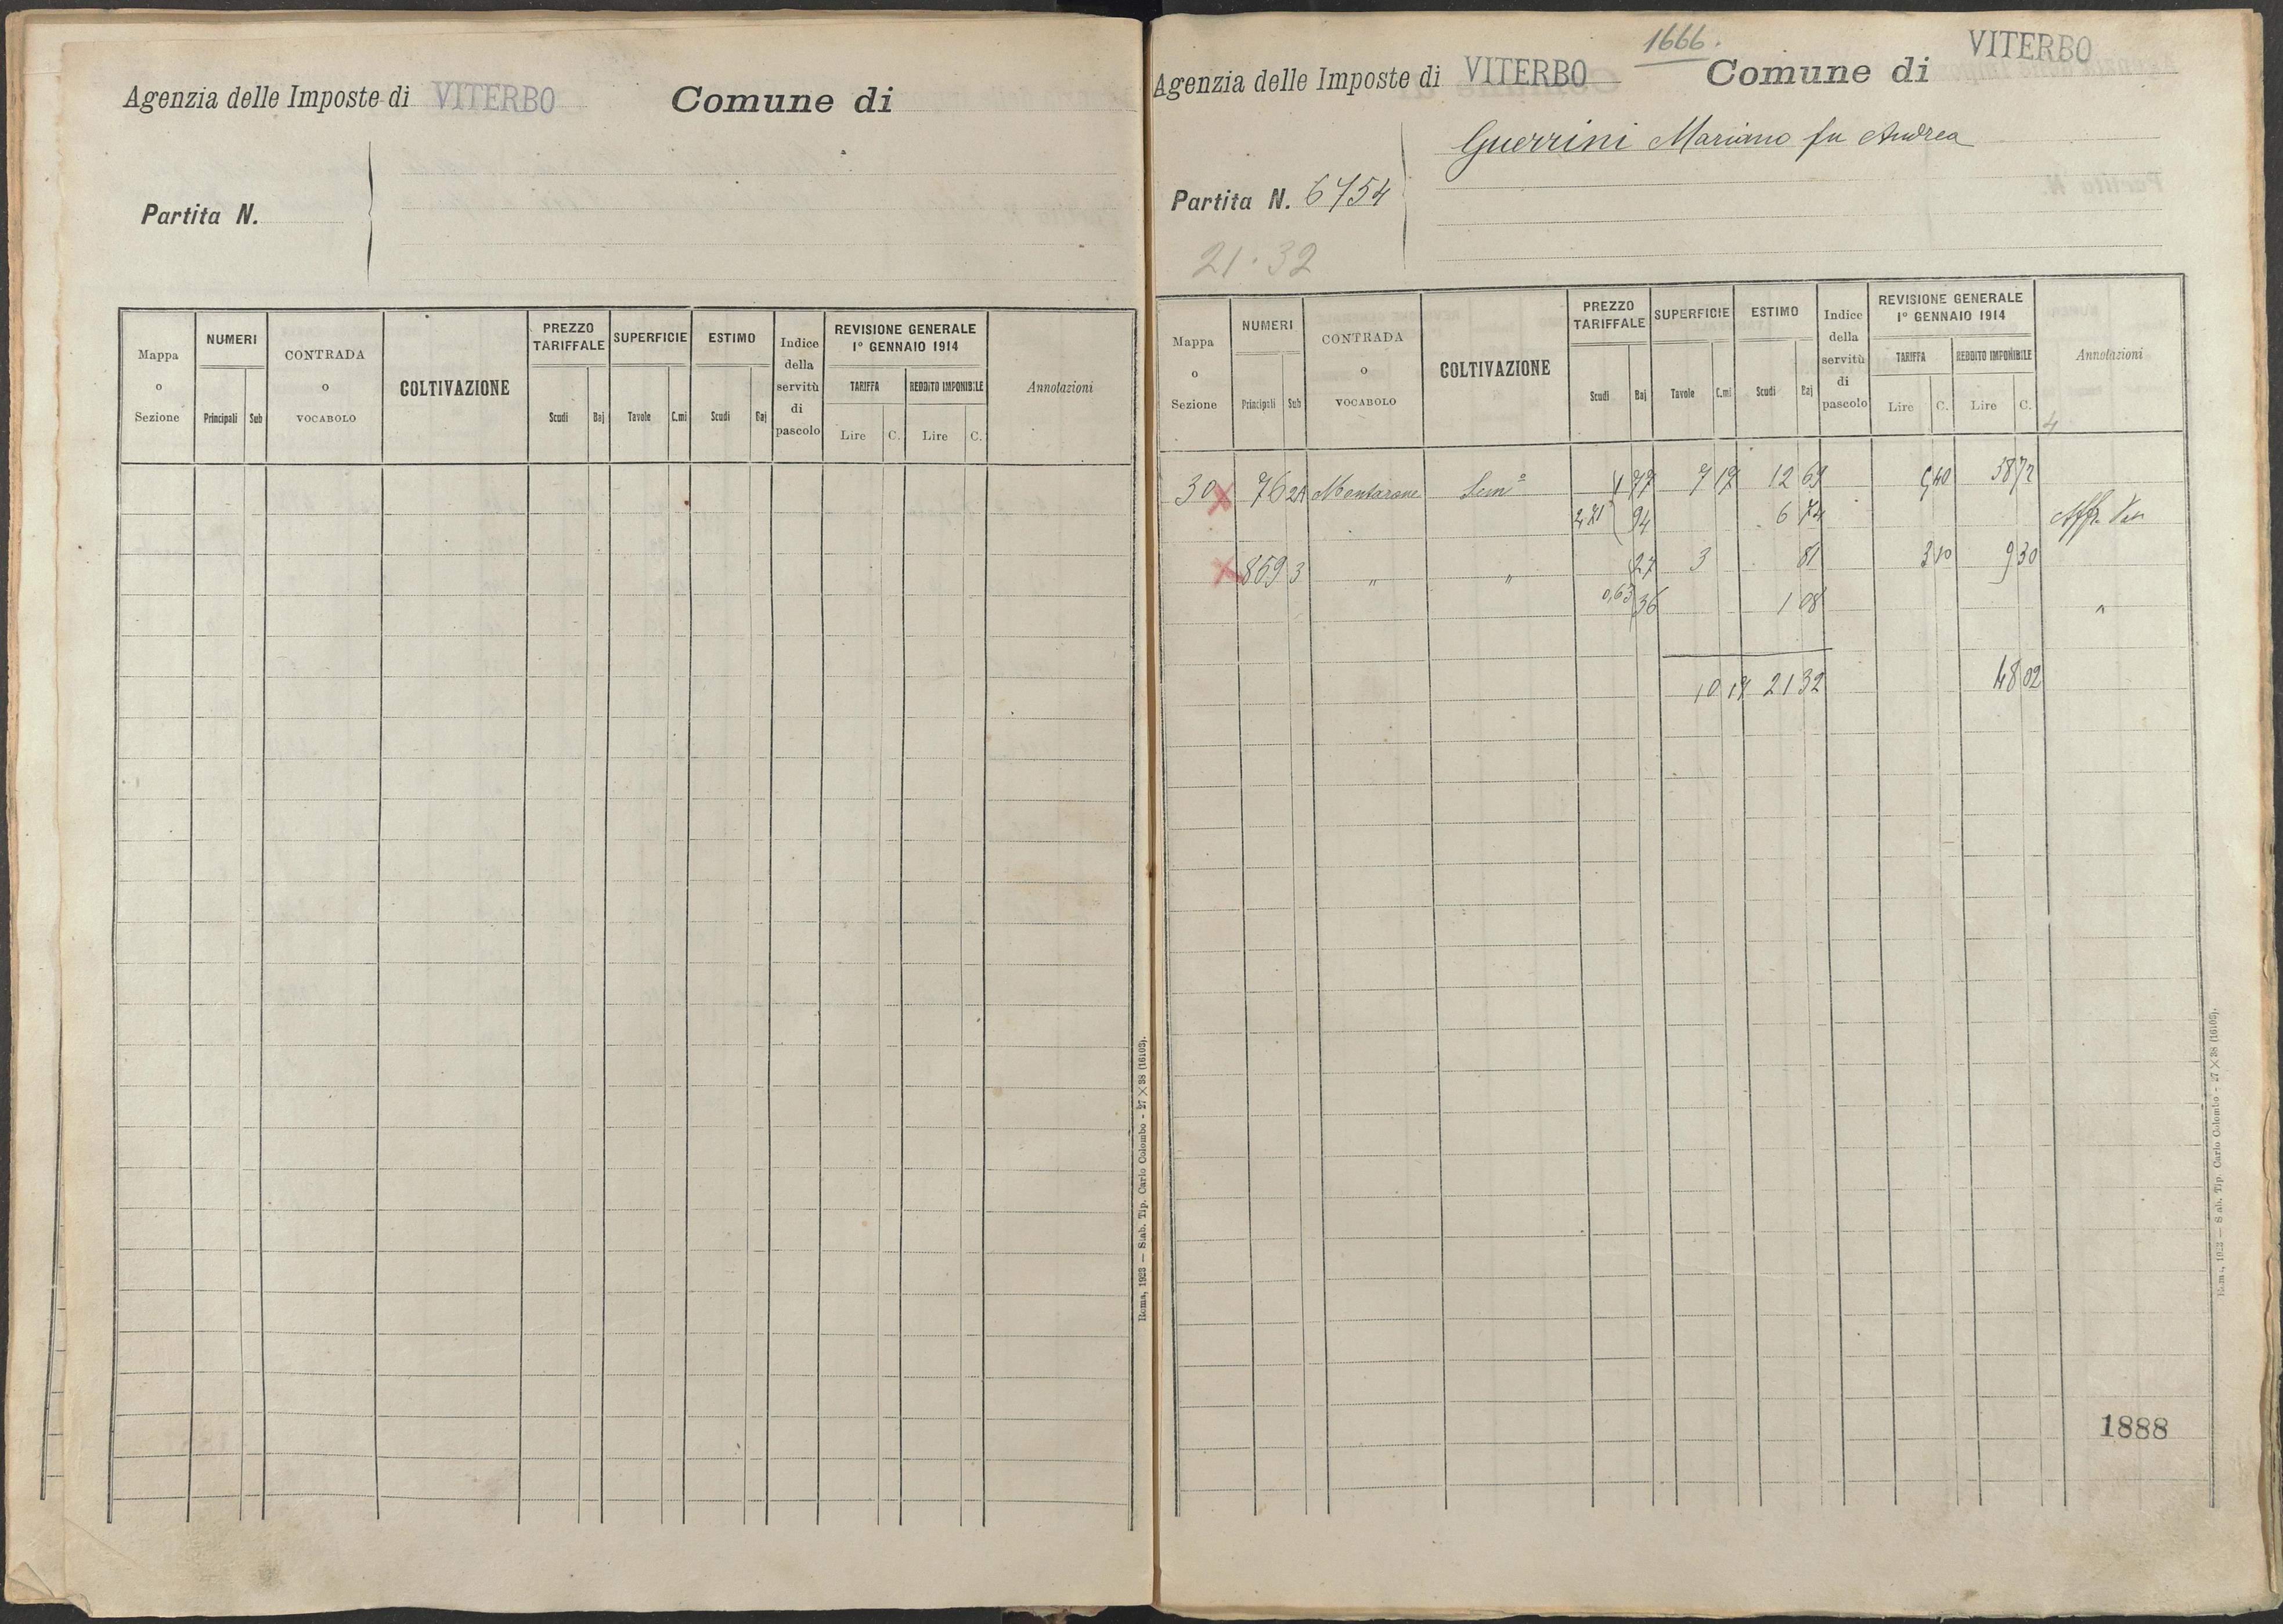 Agenzia delle Imposte di VITERBO Comune di
Partita N.
Mappa o Sezione NUMERI Principali Sub CONTRADA o VOCABOLO COLTIVAZIONE PREZZO TARIFFALE Scudi Baj SUPERFICIE Tavole C.mi ESTIMO Scudi Baj Indice della servitù di pascolo REVISIONE GENERALE 1º GENNAIO 1914 TARIFFA Lire C. REDDITO IMPONIBILE Lire C. Annotazioni
Roma, 1923 — Stab. Tip. Carlo Colombo - 27 × 38 (16103).
1666.
Agenzia delle Imposte di VITERBO Comune di VITERBO
Guerrini Mariano fu Andrea
Partita N. 6754
21.32
Mappa o Sezione NUMERI Principali Sub CONTRADA o VOCABOLO COLTIVAZIONE PREZZO TARIFFALE Scudi Baj SUPERFICIE Tavole C.mi ESTIMO Scudi Baj Indice della servitù di pascolo REVISIONE GENERALE 1º GENNAIO 1914 TARIFFA Lire C. REDDITO IMPONIBILE Lire C. Annotazioni
4
30 x 76 Sem° 1 77 7 17 12 69 5 40 38 72
2.71 94 6 74
x 869 3 " " 27 3 81 3 10 9 30
0,63 36 1 08 "
10 17 21 32 48 02
1888
Roma, 1923 — Stab. Tip. Carlo Colombo - 27 × 38 (16103).